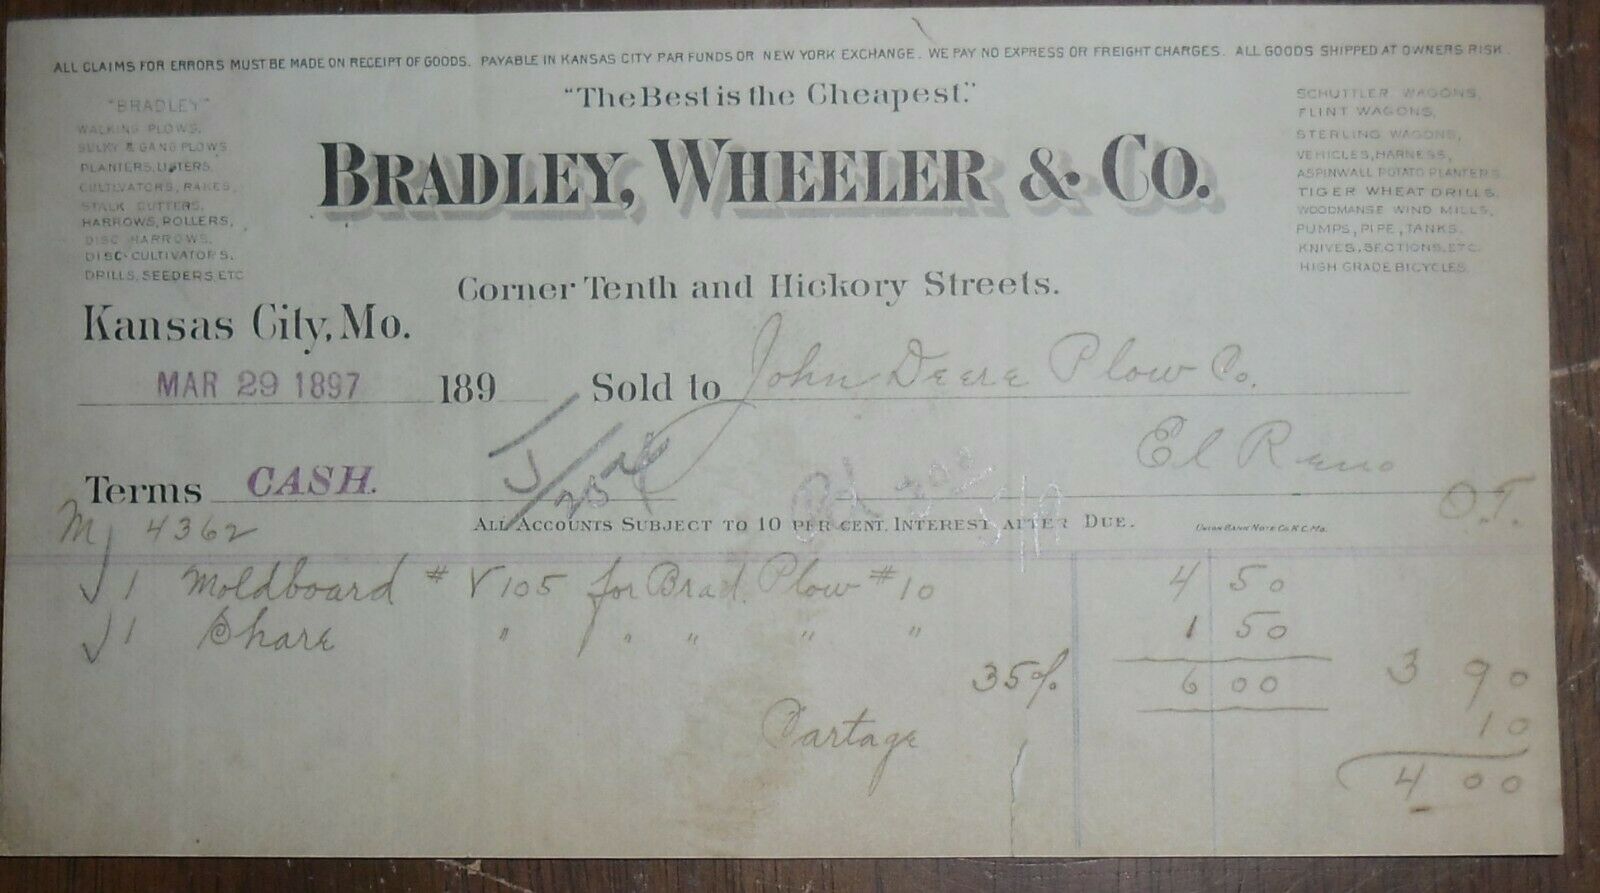 ALL CLAIMS FOR ERRORS MUST BE MADE ON RECEIPT OF GOODS. PAYABLE IN KANSAS CITY PAR FUNDS OR NEW YORK EXCHANGE. WE PAY NO EXPRESS OR FREIGHT CHARGES. ALL GOODS SHIPPED AT OWNERS RISK.
"BRADLEY"
WALKING PLOWS,
SULKY & GANG PLOWS
PLANTERS, LISTERS,
CULTIVATORS, RAKES,
STALK CUTTERS,
HARROWS, ROLLERS,
DISC HARROWS,
DISC-CULTIVATORS,
DRILLS, SEEDERS, ETC
"The Best is the Cheapest."
BRADLEY, WHEELER & CO.
Corner Tenth and Hickory Streets.
SCHUTTLER WAGONS,
FLINT WAGONS,
STERLING WAGONS,
VEHICLES, HARNESS,
ASPINWALL POTATO PLANTERS
TIGER WHEAT DRILLS.
WOODMANSE WIND MILLS,
PUMPS, PIPE, TANKS.
KNIVES, SECTIONS, ETC.
HIGH GRADE BICYCLES.
Kansas City, Mo.
MAR 29 1897 189 Sold to John Deere Plow Co.
El Reno
Terms CASH. O.T.
M 4362
ALL ACCOUNTS SUBJECT TO 10 PER CENT. INTEREST AFTER DUE. Union Bank Note Co. K.C. Mo.
1 Moldboard # V105 for Brad. Plow #10 4 50
1 Share " " " " " 1 50
35% 6 00 3 90
Cartage 10
4 00